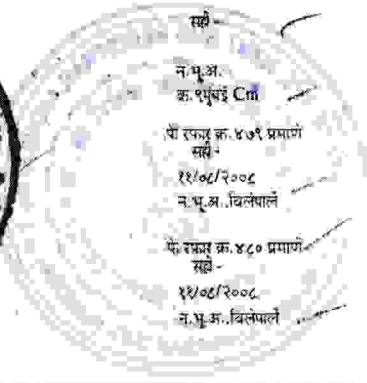 सही -
न.भू.अ.
क्र.१मुंबई
फे रफार क्र.४७९ प्रमाणे
सही -
११/०८/२००८
न.भू.अ..विलेपार्ले
फे रफार क्र.४८० प्रमाणे
सही -
११/०८/२००८
न.भू.अ..विलेपार्ले